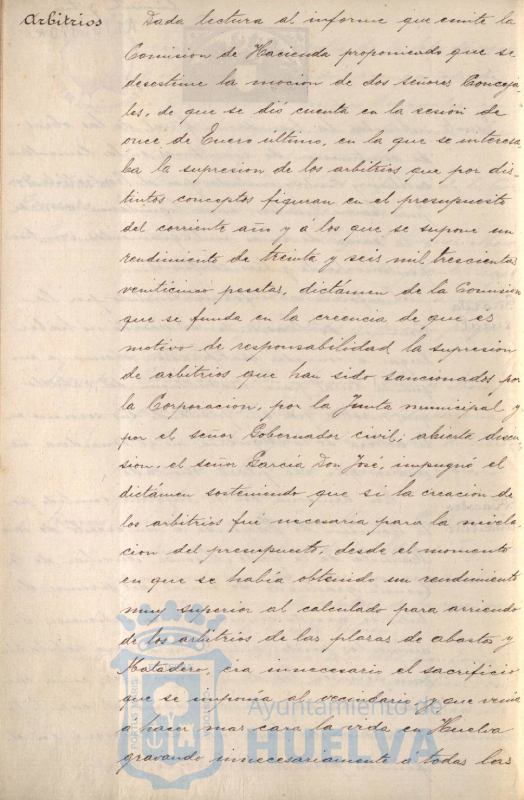 Arbitrios
Dada lectura al informe que emite la
Comision de Hacienda proponiendo que se
desestime la mocion de dos señores Conceja-
les, de que se dió cuenta en la sesión de
once de Enero último, en la que se interesa
ba la supresion de los arbitrios que por dis-
tintos conceptos figuran en el presupuesto
del corriente año y á los que se supone un
rendimiento de treinta y seis mil trescientas
veinticinco pesetas, dictámen de la Comision
que se funda en la creencia de que es
motivo de responsabilidad la supresion
de arbitrios que han sido sancionados por
la Corporacion, por la Junta municipal y
por el señor Gobernador civil; abierta discu-
sion, el señor García Don José, impugnó el
dictámen sosteniendo que si la creacion de
los arbitrios fué necesaria para la nivela-
cion del presupuesto, desde el momento
en que se había obtenido un rendimiento
muy superior al calculado para arriendo
de los arbitrios de las plazas de abastos y
Matadero, era innecesario el sacrificio
que se imponia al vecindario y que venia
a hacer mas cara la vida en Huelva
gravando innecesariamente a todas las
Ayuntamiento de
HUELVA